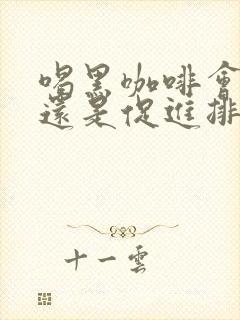 喝黑咖啡會
還是促進排
十一雲